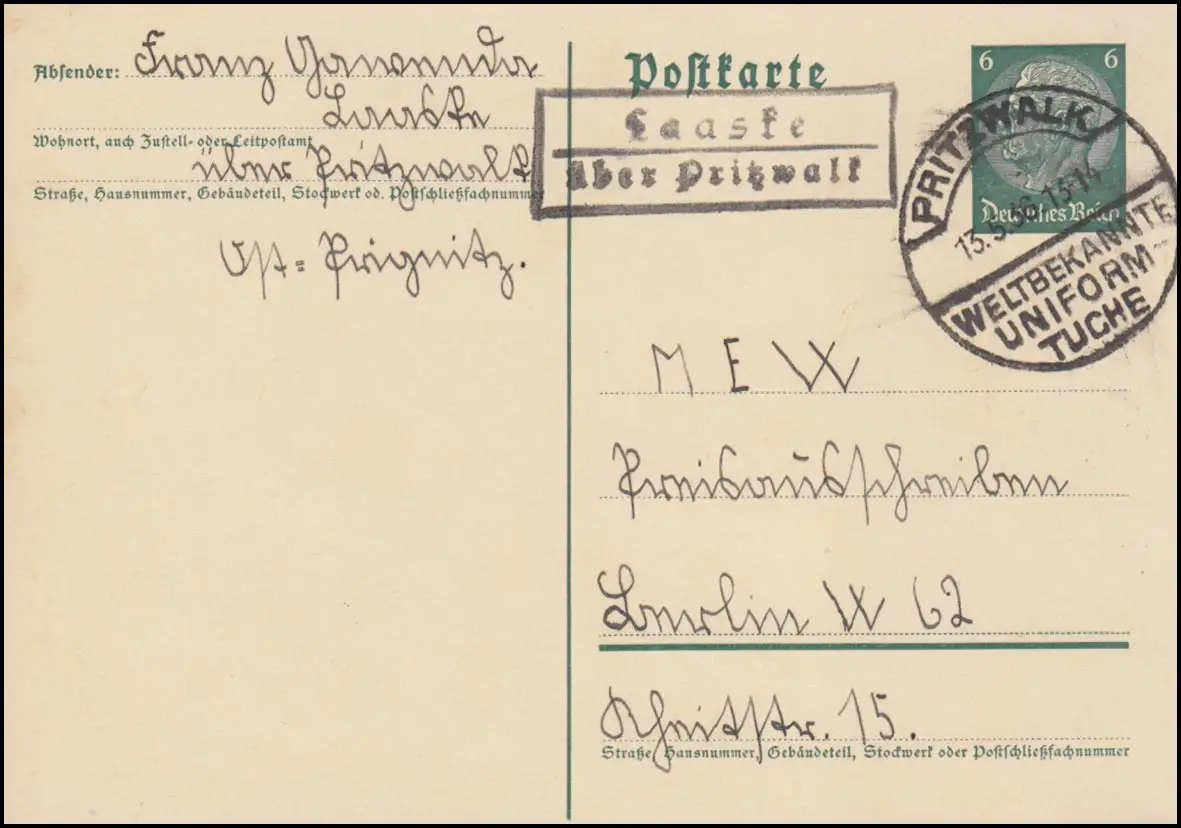 Absender: Franz Gawenda
Laaske
Wohnort, auch Zustell- oder Leitpostamt
über Pritzwalk
Straße, Hausnummer, Gebäudeteil, Stockwerk od. Postschließfachnummer
Ost-Prignitz.
Postkarte
Laaske
über Pritzwalk
6 6
Deutsches Reich
PRITZWALK
13.5.36.13-14
WELTBEKANNTE
UNIFORM-
TUCHE
M E W
Preisausschreiben
Berlin W 62
15.
Straße, Hausnummer, Gebäudeteil, Stockwerk oder Postschließfachnummer